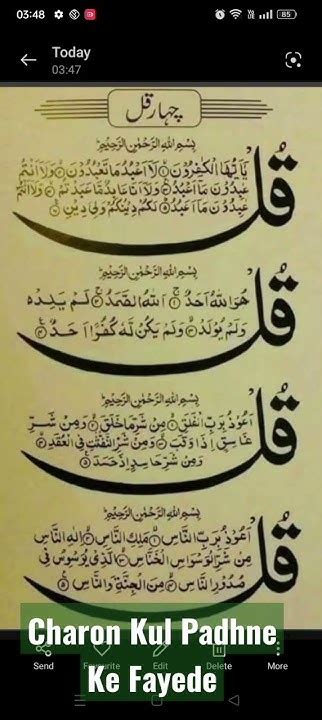 03:48
85
Today
03:47
چہار قل
بِسْمِ اللّٰهِ الرَّحْمٰنِ الرَّحِيْمِ
قُلْ
يٰٓاَيُّهَا الْكٰفِرُوْنَ ۙ لَآ اَعْبُدُ مَا تَعْبُدُوْنَ ۙ وَلَآ اَنْتُمْ
عٰبِدُوْنَ مَآ اَعْبُدُ ۚ وَلَآ اَنَا عَابِدٌ مَّا عَبَدْتُّمْ ۙ وَلَآ اَنْتُمْ
عٰبِدُوْنَ مَآ اَعْبُدُ ۗ لَكُمْ دِيْنُكُمْ وَلِيَ دِيْنِ
بِسْمِ اللّٰهِ الرَّحْمٰنِ الرَّحِيْمِ
قُلْ
هُوَ اللّٰهُ اَحَدٌ ۚ اَللّٰهُ الصَّمَدُ ۚ لَمْ يَلِدْ ۙ
وَلَمْ يُوْلَدْ ۙ وَلَمْ يَكُنْ لَّهٗ كُفُوًا اَحَدٌ
بِسْمِ اللّٰهِ الرَّحْمٰنِ الرَّحِيْمِ
قُلْ
اَعُوْذُ بِرَبِّ الْفَلَقِ ۙ مِنْ شَرِّ مَا خَلَقَ ۙ وَمِنْ شَرِّ
غَاسِقٍ اِذَا وَقَبَ ۙ وَمِنْ شَرِّ النَّفّٰثٰتِ فِى الْعُقَدِ ۙ
وَمِنْ شَرِّ حَاسِدٍ اِذَا حَسَدَ
بِسْمِ اللّٰهِ الرَّحْمٰنِ الرَّحِيْمِ
قُلْ
اَعُوْذُ بِرَبِّ النَّاسِ ۙ مَلِكِ النَّاسِ ۙ اِلٰهِ النَّاسِ ۙ
مِنْ شَرِّ الْوَسْوَاسِ الْخَنَّاسِ ۙ الَّذِيْ يُوَسْوِسُ فِيْ
صُدُوْرِ النَّاسِ ۙ مِنَ الْجِنَّةِ وَالنَّاسِ
Charon Kul Padhne
Ke Fayede
Send Favourite Edit Delete More